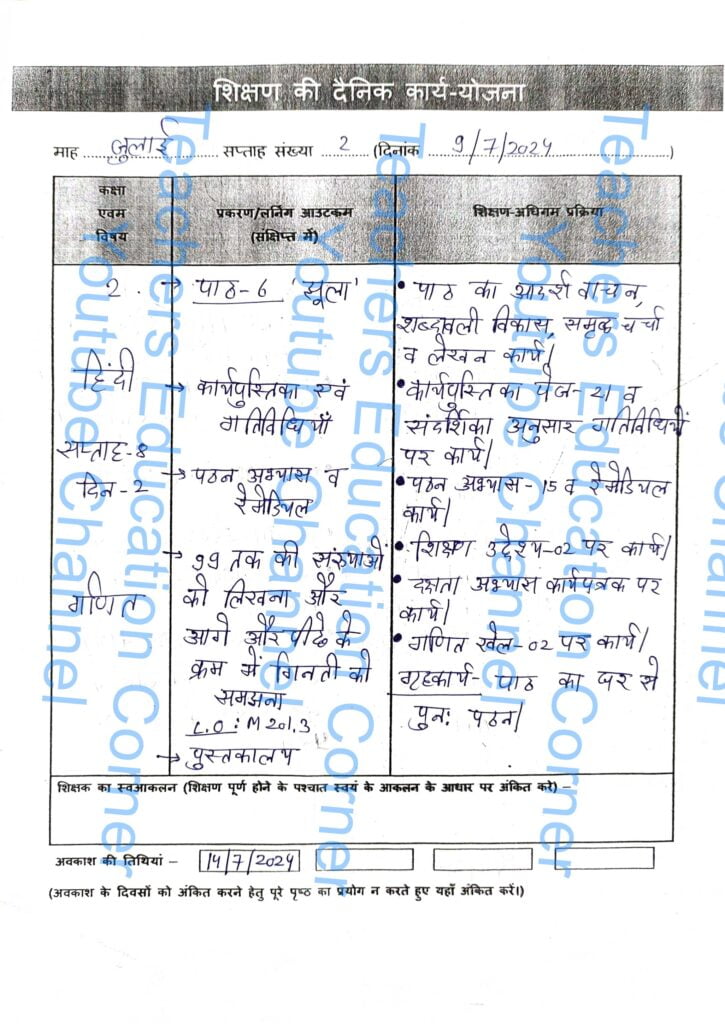 शिक्षण की दैनिक कार्य-योजना
माह ....जुलाई.... सप्ताह संख्या ....2.... (दिनांक ....9/7/2024....)
कक्षा
एवम
विषय
प्रकरण/लर्निंग आउटकम
(संक्षिप्त में)
शिक्षण-अधिगम प्रक्रिया
2.
हिंदी
सप्ताह-8
दिन-2
गणित
→ पाठ-6 'झूला'
→ कार्यपुस्तिका एवं
गतिविधियाँ
→ पठन अभ्यास व
रेमेडियल
→ 99 तक की संख्याओं
को लिखना और
आगे और पीछे के
क्रम में गिनती को
समझना
L.O : M 201.3
→ पुस्तकालय
• पाठ का आदर्श वाचन,
शब्दावली विकास, समृद्ध चर्चा
व लेखन कार्य|
• कार्यपुस्तिका पेज-21 व
संदर्शिका अनुसार गतिविधियों
पर कार्य|
• पठन अभ्यास-15 व रेमेडियल
कार्य|
• शिक्षण उद्देश्य-02 पर कार्य|
• दक्षता अभ्यास कार्यपत्रक पर
कार्य|
• गणित खेल-02 पर कार्य|
गृहकार्य- पाठ का घर से
पुनः पठन|
शिक्षक का स्वआकलन (शिक्षण पूर्ण होने के पश्चात स्वयं के आकलन के आधार पर अंकित करे) –
अवकाश की तिथियां – 14/7/2024
(अवकाश के दिवसों को अंकित करने हेतु पूरे पृष्ठ का प्रयोग न करते हुए यहाँ अंकित करें।)
Teachers Education Corner
Youtube Channel
Teachers Education Corner
Youtube Channel
Teachers Education Corner
Youtube Channel